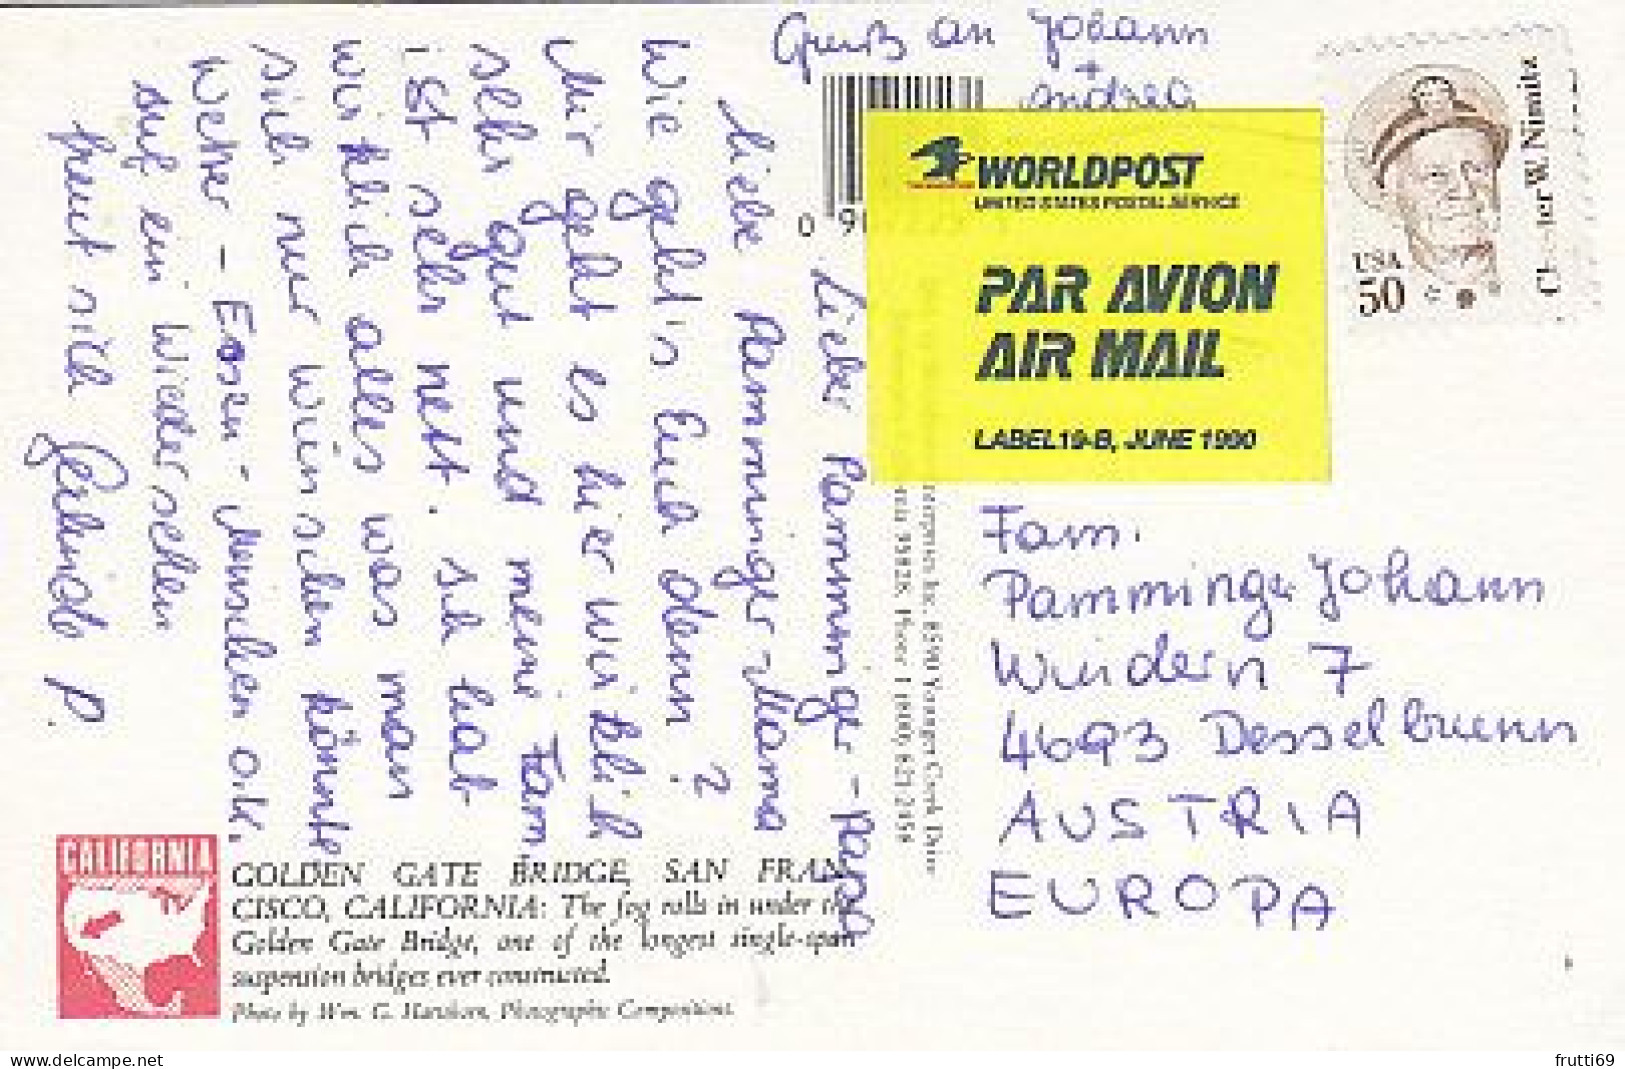 Gruß an Johann
+
Andrea
Liebe Pamminger-Mama
Lieber Pamminger-Papa
Wie geht's Euch denn?
Mir geht es hier wirklich
sehr gut und meine Fam
ist sehr nett. Ich hab
wirklich alles was man
sich nur wünschen könnte
Wetter - Essen - Menschen o.k.
auf ein Wiedersehen
freut sich Gerlinde P.
WORLDPOST
UNITED STATES POSTAL SERVICE
PAR AVION
AIR MAIL
LABEL 19-B, JUNE 1990
Chester W. Nimitz
USA
50
0 9
Fam.
Pamminger Johann
Windern 7
4693 Desselbrunn
AUSTRIA
EUROPA
CALIFORNIA
GOLDEN GATE BRIDGE, SAN FRAN-
CISCO, CALIFORNIA: The fog rolls in under the
Golden Gate Bridge, one of the longest single-span
suspension bridges ever constructed.
Photo by Wm. G. Hartshorn, Photographic Compositions
www.delcampe.net
frutti69